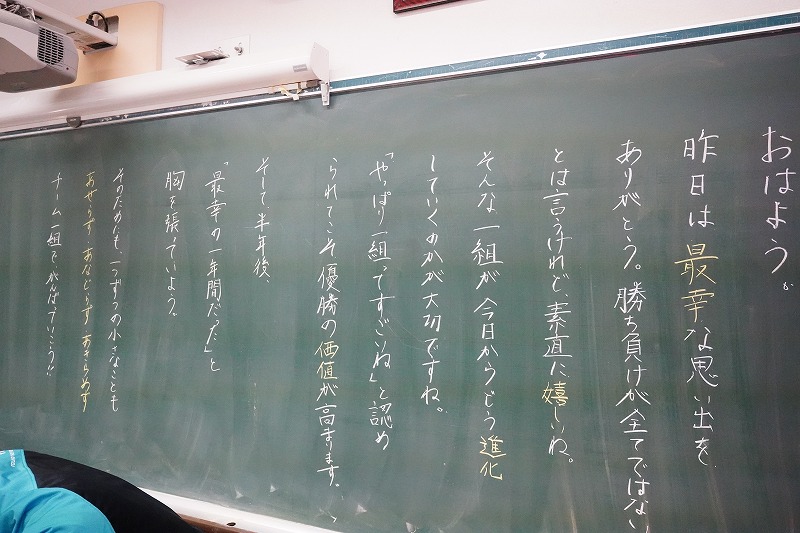 おはよう。
昨日は最幸な思い出を
ありがとう。勝ち負けが全てではない
とは言うけれど、素直に嬉しいね。
そんな一組が今日からどう進化
していくのかが大切ですね。
「やっぱり一組ってすごいね」と認め
られてこそ優勝の価値が高まります。
そして、半年後、
「最幸の一年間だった」と
胸を張っていよう。
そのためにも一つずつの小さなことも
あせらず・あなどらず・あきらめず
チーム一組でがんばっていこう!!